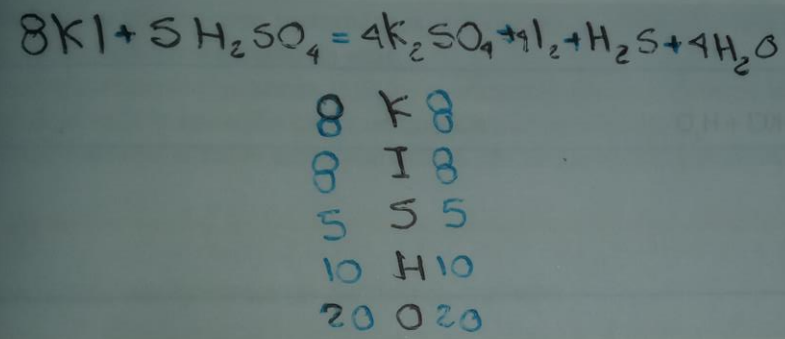 8KI + 5H₂SO₄ = 4K₂SO₄ + 4I₂ + H₂S + 4H₂O
8 K 8
8 I 8
5 S 5
10 H 10
20 O 20